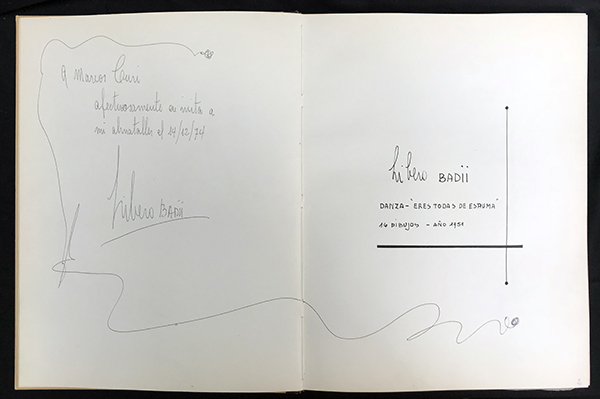 A Marcos Curi
afectuosamente
mi almataller el 17/12/74
Libero BADII
Libero BADII
DANZA - "ERES TODAS DE ESPUMA"
16 DIBUJOS - AÑO 1951